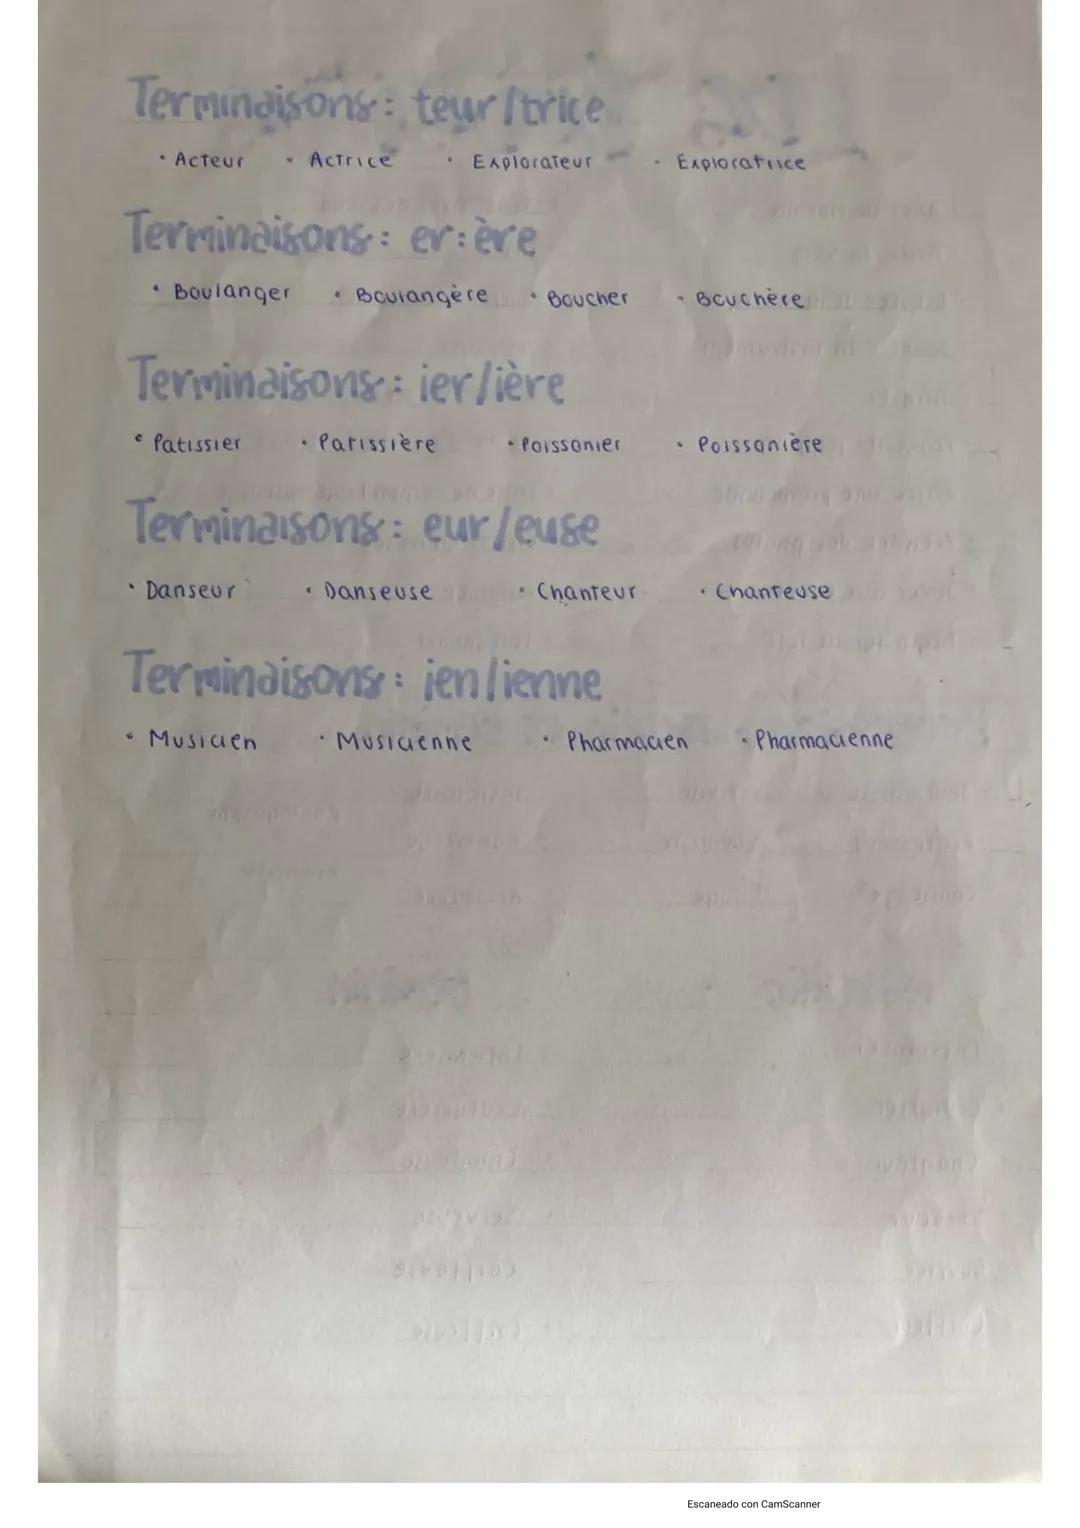 Terminaisons: teur/trice
• Acteur • Actrice • Explorateur • Exploratrice
Terminaisons: er:ère
• Boulanger • Boulangère • Boucher • Bouchère
Terminaisons: ier/ière
• Patissier • Patissière • Poissonier • Poissonière
Terminaisons: eur/euse
• Danseur • Danseuse • Chanteur • Chanteuse
Terminaisons: ien/ienne
• Musicien • Musicienne • Pharmacien • Pharmacienne
Escaneado con CamScanner